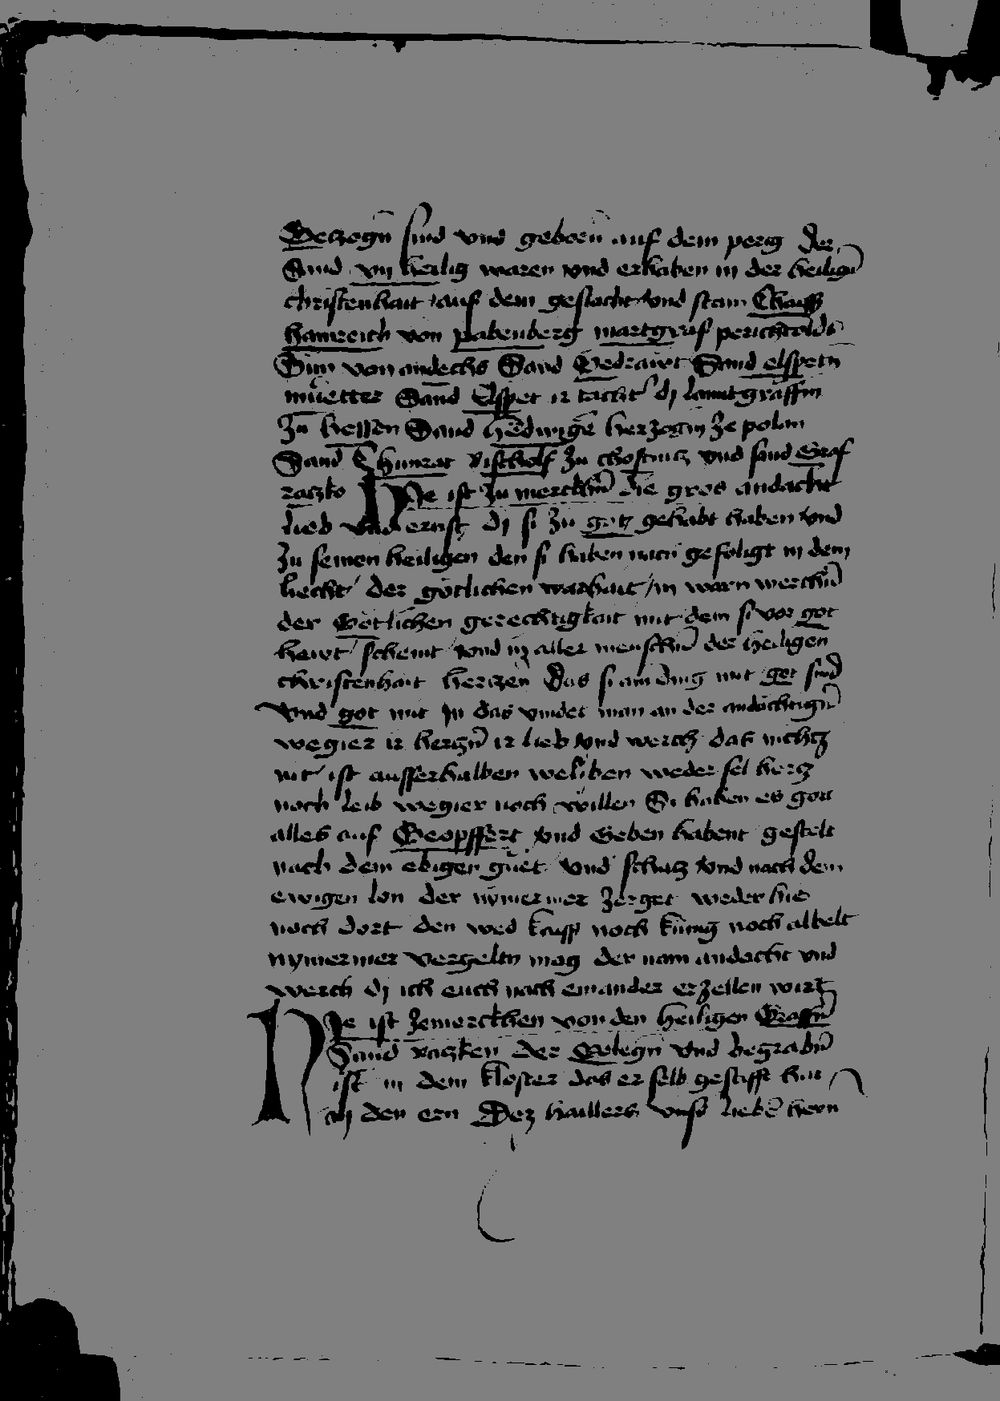 Geczogn̄ sind vnd geborn̄ auf dem perg der
Sand vij heilig waren vnd erhaben in der heilign̄
christenhait auf dem geslacht vnd stam Chaiss
hainreich von pabenberg martgraf perichtolds
Sun von andechs Sand Gedrawt Sand elspetn
mueter Sand Elspet ir tacht dj lanntgraffin
Zu hessen Sand hedwige herzogin ze polan
Sand Chunrat Bischolf zu chostnicz vnd sand Graf
raczko Hie ist zu merckhn̄ die gros andacht
lieb vnd ernst dj si zu got gehabt haben vnd
zu seinen heiligen den si haben nach gefolgt in dem
liecht der gotlichen warhait in warn werchn̄
der Gotlichen gerechtigkait mit dem si vor got
hewt scheint vnd in aller menschn̄ der heiligen
christenhait herczen Das si ain ding mit got sind
vnd got mit in das vindet man an der andachtign̄
wegier ir herczn̄ ir lieb vnd werch das nichtz
nit ist ausserhalben weliben weder sel hercz
noch leib wegier noch willen Si haben es got
alles auf Geopffert vnd Geben habent gestelt
nach dem ebigen guet vnd schatz vnd nach dem
ewigen lon der nymermer zerget weder hie
noch dort den wed noch kunig noch
nymermer vergeltn mag der nam andacht vnd
werch dj ich euch nach einander erzellen wirt
Hie ist zemerckhen von den heiligen Graffn̄
Sand raczken der Gelegn vnd begrabn̄
ist in dem kloster das er selb gestifft hat
in den ern Dez haillers vnsers liebn̄ hern